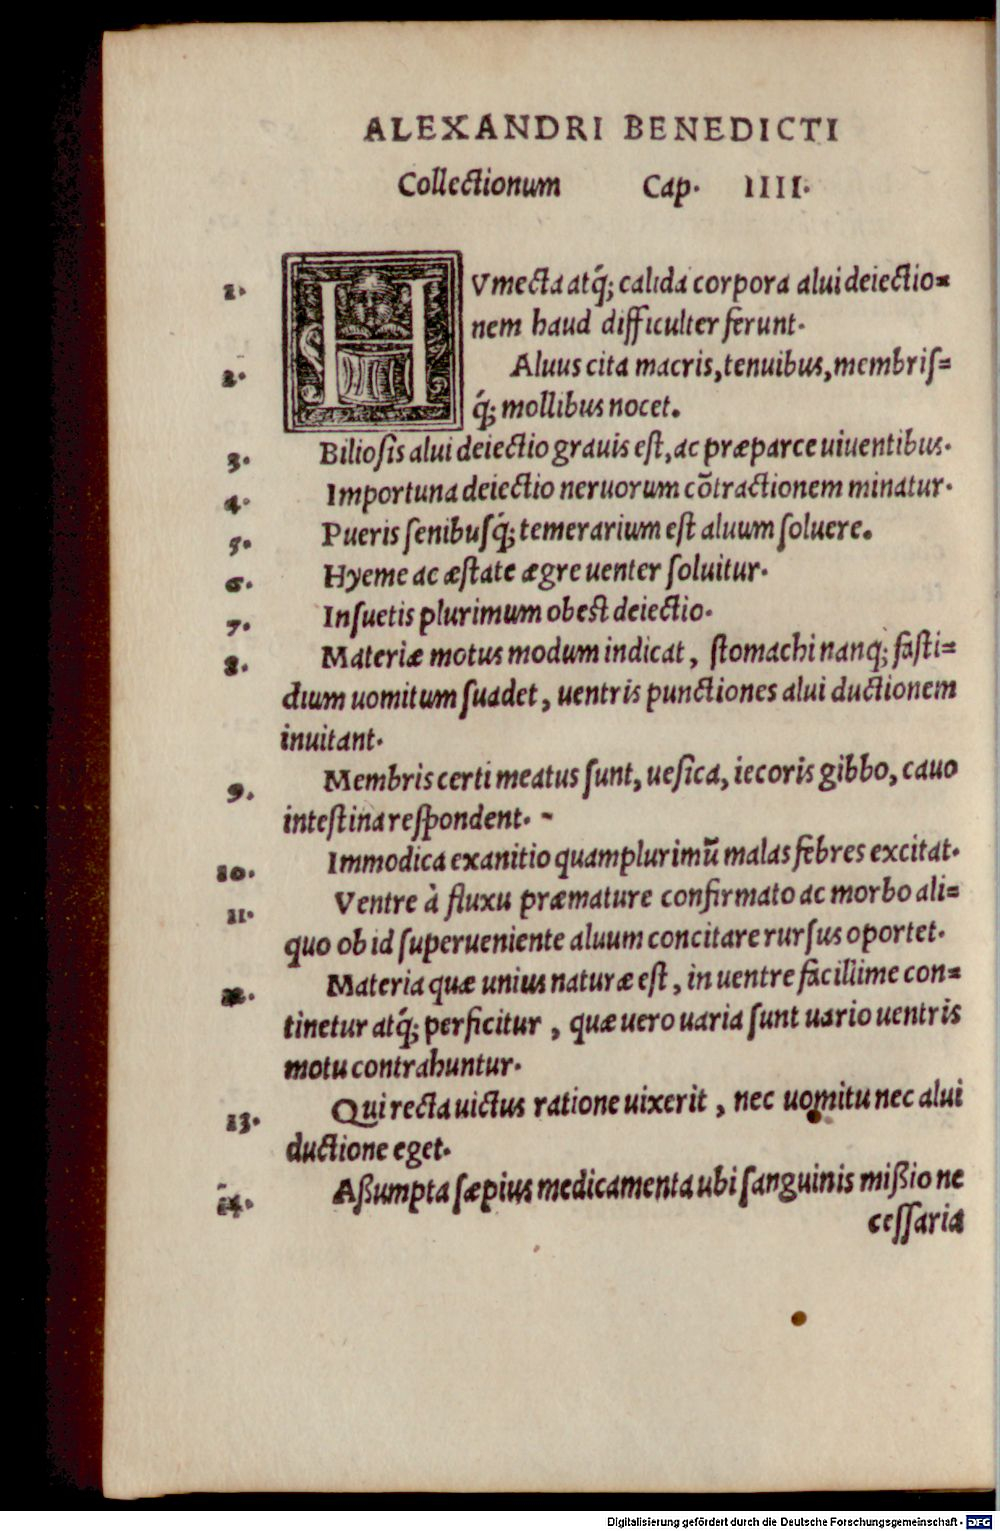 ALEXANDRI BENEDICTI
Collectionum Cap. IIII.
1. HVmecta atq́; calida corpora alui deiectio=
nem haud difficulter ferunt.
2. Aluus cita macris, tenuibus, membriſ=
q́; mollibus nocet.
3. Bilioſis alui deiectio grauis eſt, ac præparce uiuentibus.
4. Importuna deiectio neruorum cõtractionem minatur.
5. Pueris ſenibuſq́; temerarium eſt aluum ſoluere.
6. Hyeme ac æſtate ægre uenter ſoluitur.
7. Inſuetis plurimum obest deiectio.
8. Materiæ motus modum indicat, ſtomachi nanq; faſti=
dium uomitum ſuadet, uentris punctiones alui ductionem
inuitant.
9. Membris certi meatus ſunt, ueſica, iecoris gibbo, cauo
inteſtina reſpondent.
10. Immodica exanitio quamplurimũ malas febres excitat.
11. Ventre à fluxu præmature confirmato ac morbo ali=
quo ob id ſuperueniente aluum concitare rurſus oportet.
12. Materia quæ unius naturæ eſt, in uentre facillime con=
tinetur atq́; perficitur, quæ uero uaria ſunt uario uentris
motu contrahuntur.
13. Qui recta uictus ratione uixerit, nec uomitu nec alui
ductione eget.
14. Aßumpta ſæpius medicamenta ubi ſanguinis mißio ne
ceſſaria
Digitalisierung gefördert durch die Deutsche Forschungsgemeinschaft - DFG